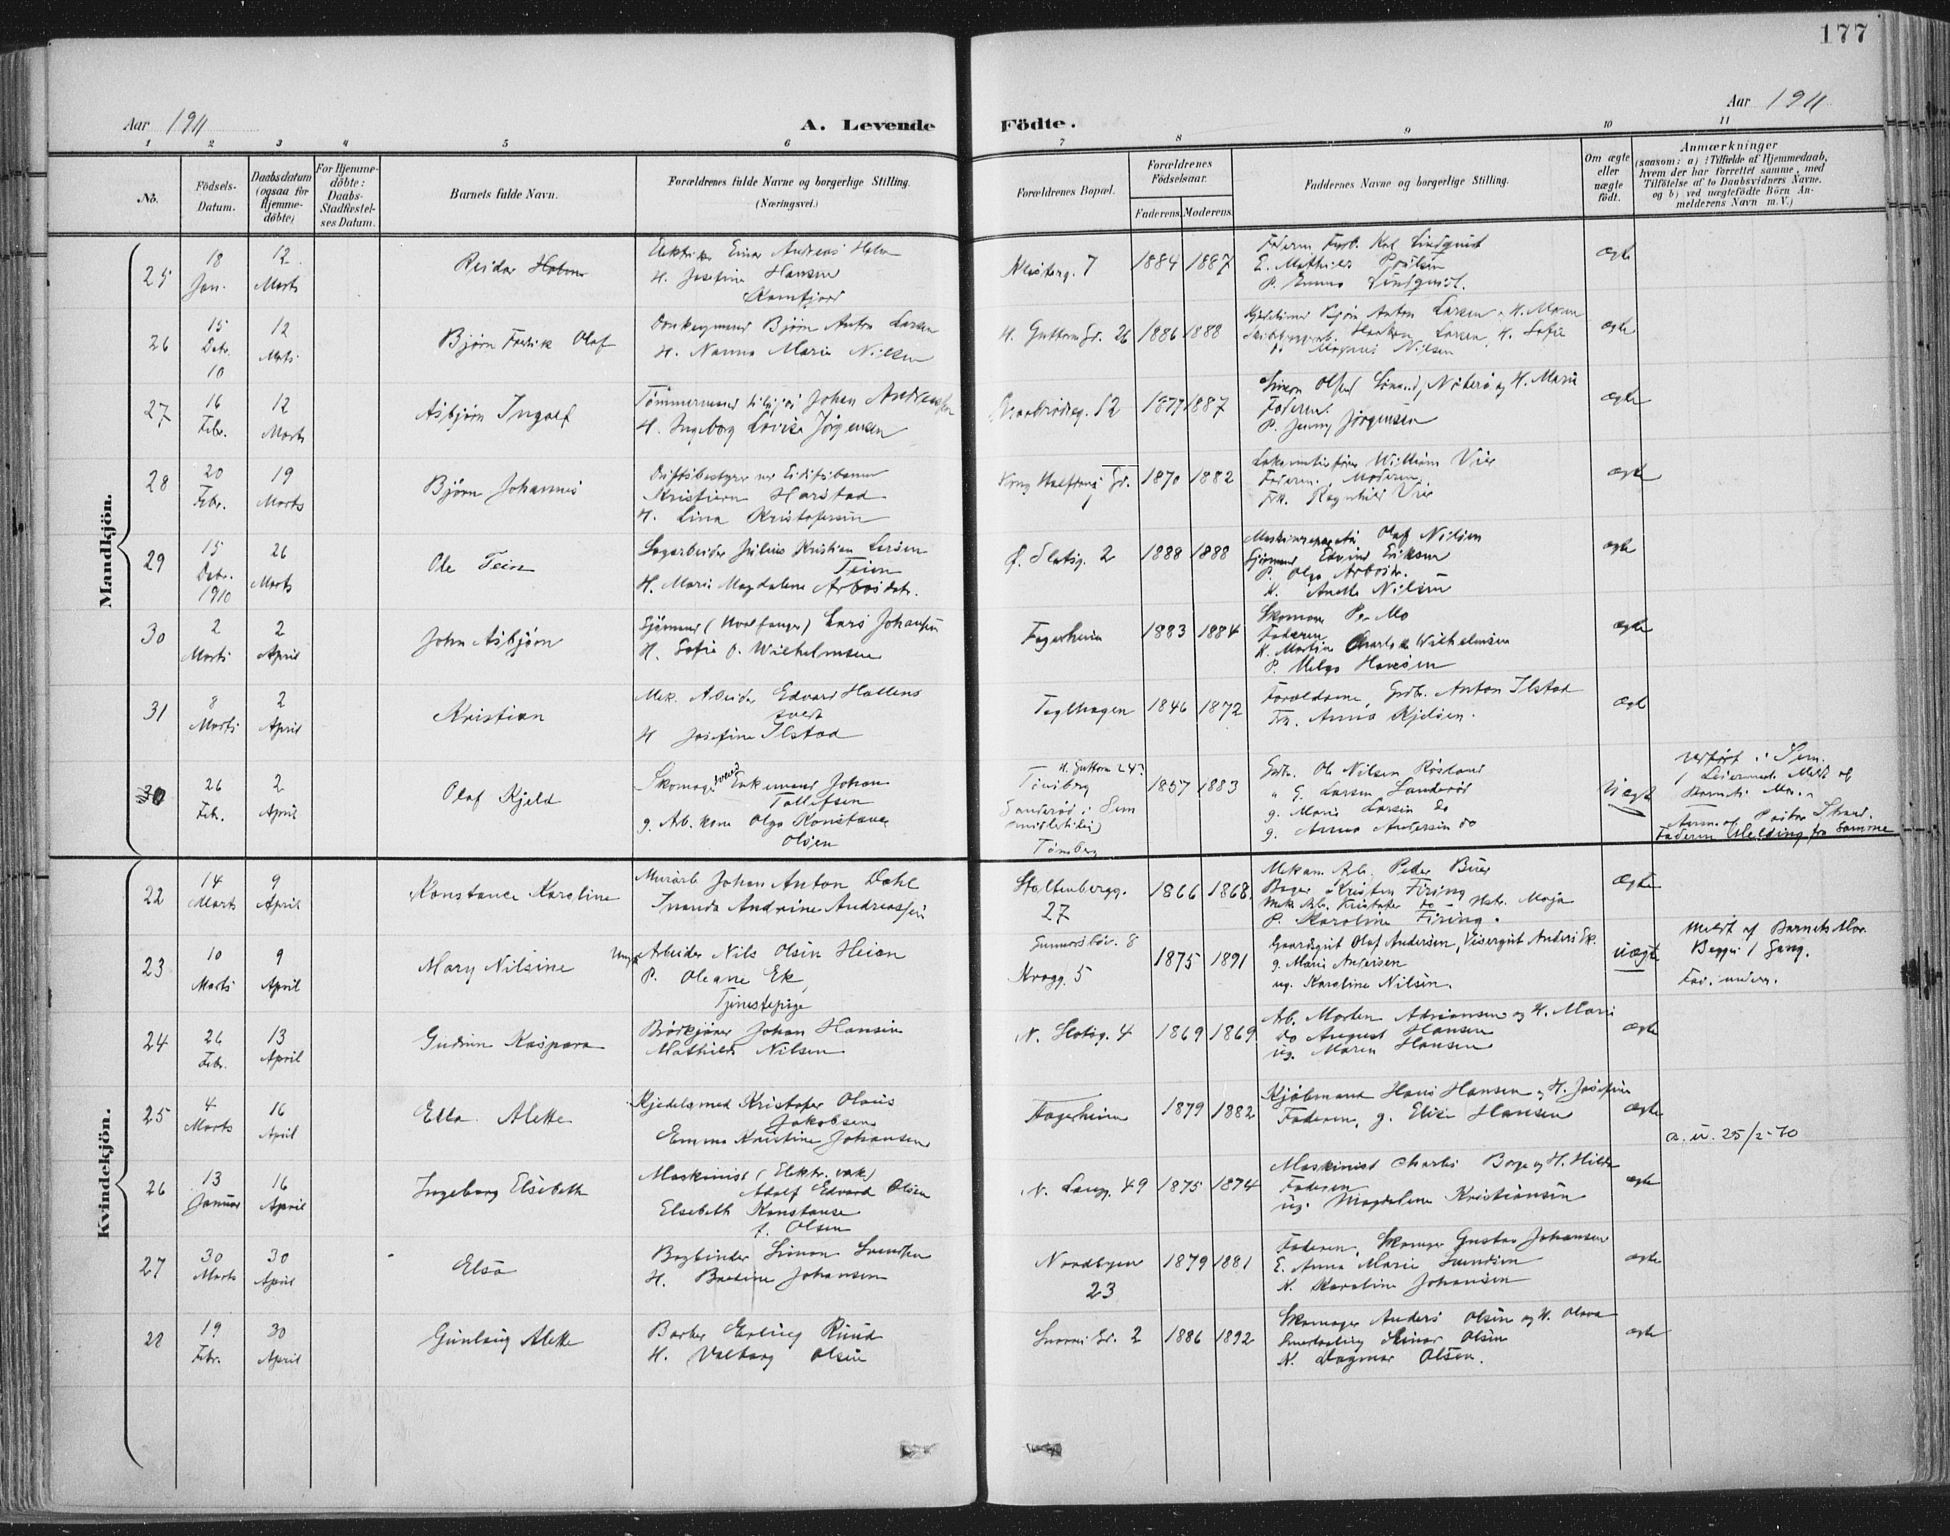 177
Aar 1911
A. Levende Födte.
Aar 1911
1 2 3 4 5 6 7 8 9 10 11
No.
Födsels-Datum.
Daabsdatum (ogsaa for Hjemme-döbte)
For Hjemme-döbte: Daabs-Stadfæstel-ses Datum.
Barnets fulde Navn.
Forældrenes fulde Navne og borgerlige Stilling.
(Næringsvei.)
Forældrenes Bopæl.
Forældrenes Födselsaar.
Faderens. Moderens.
Faddernes Navne og borgerlige Stilling.
Om ægte eller uægte födt.
Anmærkninger
(saasom: a) i Tilfælde af Hjemmedaab, hvem der har forrettet samme, med Tilföielse af to Daabsvidners Navne. og b) ved uægtefödte Börn An-melderens Navn m. V.)
Mandkjön.
25
18 Jan.
12 Marts
Reidar Holm
Elektriker Einar Andreas Holm
H. Josefine Hansen
Ramfjord
7
1884 1887
E. Mathilde
P. Emma Lindquist.
ægte
26
15 Debr. 10
12 Mts
Bjørn Fredrik Olaf
Bjørn Anton Larsen
H. Nanna Marie Nilsen
H. Guttorms Gd. 26
1886 1888
Bjørn Anton Larsen, H. Marn
Haakon Larsen, H. Sofie
Magnus Nilsen
ægte
27
16 Febr.
12 Marts
Asbjørn Ingolf
Tømmermand Johan Andreassen
H. Ingeborg Lovise Jørgensen
12
1877 1887
Simon Olsen, Nøterø og H. Marie
Faderen.
P. Jenny Jørgensen
ægte
28
20 Febr.
19 Marts
Bjørn Johannes
Driftsbestyrer ved Eidsfosbanen
Kristian Harstad
H. Lina Kristofersen
1870 1882
Lokomotivfører William Vier
Faderen. Moderen.
Frk. Ragnhild Vier
ægte
29
15 Debr. 1910
26 Marts
Ole Teien
Sagarbeider Julius Kristian Larsen
Teien
H. Marie Magdalene Arbosdatr.
Ø. Slotsg. 2
1888 1888
Olaf Nilsen
Sjømand Edvind Eriksen
P. Olga Arbosdr.
K. Anette Nilsen
ægte
30
2 Marts
2 April
John Asbjørn
Sjømand (Hvalfanger) Lars Johansen
H. Sofie f. Wilhelmsen
Fagerheim
1883 1884
Skomager P. Mo
Faderen
K. Martin Charles Wilhelmsen
P. Helga Hansen
ægte
31
8 Marts
2 April
Kristian
Mek. Arbeider Edvard Hallens
tvedt
H Josefine Ilstad
Teglhagen
1846 1872
Forældrene, Grdbr. Anton Ilstad
Frk. Anna Kjelsen.
ægte
30
26 Febr.
2 April
Olaf Kjeld
Skomagersvend Enkemand Johan
Tollefsen
g. Ab. kone Olga Konstance
Olsen
H. Guttorm 24?
Tönsberg
Sanderød i Sem
(midlertidig)
Tönsberg
1857 1883
Grdbr. Ole Nilsen Røsland
" G. Larsen Sanderød
g. Marie Larsen do
g. Anna Andersen do
Uægte
indført i Sem.
1 Leiermaal. Meldt af
Barnets Mor.
Anm. af Pastor Strand.
Faderen Melding fra Samme
Kvindekjön.
22
14 Marts
9 April
Konstance Karoline
Murarb. Johan Anton Dahl
Inanda Andrine Andreassen
Stoltenbergg. 27
1866 1868.
Mekan. Arb. Peder Buer
Bager Kristen Firing
Mek. Arb. Kristofer do - Hstr. Maja
P. Karoline Firing.
Ægte
23
10 Marts
9 April
Mary Nilsine
Ungk. Arbeider Nils Olsen Heian
P. Oleane Ek,
Tjenestepige
Gunnarsbøv. 8
Kragg. 5
1875 1891
Gaardsgut Olaf Andersen, Visergut Anders Ek.
g. Marie Andersen
ug. Karoline Nilsen.
uægte
Meldt af Barnets Mor.
Begge 1 Gang.
Fad. underr.
24
26 Febr.
13 April
Gudrun Kaspara
Brødkjører Johan Hansen
Mathilde Nilsen
N. Slotsg. 4
1869 1869.
Ab. Morten Adriansen og H. Marie
do August Hansen
ug. Maren Hansen
ægte
25
4 Marts
16 April
Ella Alette
Kjedelsmed Kristofer Olaus
Jakobsen
Emma Kristine Johansen
Fagerheim
1879 1882
Kjøbmand Hans Hansen og H. Josefine
Faderen, g. Elise Hansen
ægte
a. u. 25/2-70
26
13 Januar
16 April
Ingeborg Elisebeth
Maskinist (Elektr. vrk)
Adolf Edvard Olsen
Elsebeth Konstanse
f. Olsen
N. Langg. 49
1875 1874
Maskinist Charles Borge og H. Hilda
Faderen
ug. Magdalene Kristiansen
ægte
27
30 Marts
30 April
Elsa
Bogbinder Simon Svendsen
H. Bredine Johansen
Nordbyen 23
1879 1881
Faderen, Skomager Gustav Johansen
E. Anna Marie Svendsen
K. Karoline Johansen
ægte
28
19 Febr.
30 April
Gunlaug Alette
Barber Erling Ruud
H. Valborg Olsen
Snorres Gd. 2
1886 1892
Skomager Anders Olsen og H. Olava
Einar Olsen
K. Dagmar Olsen.
ægte